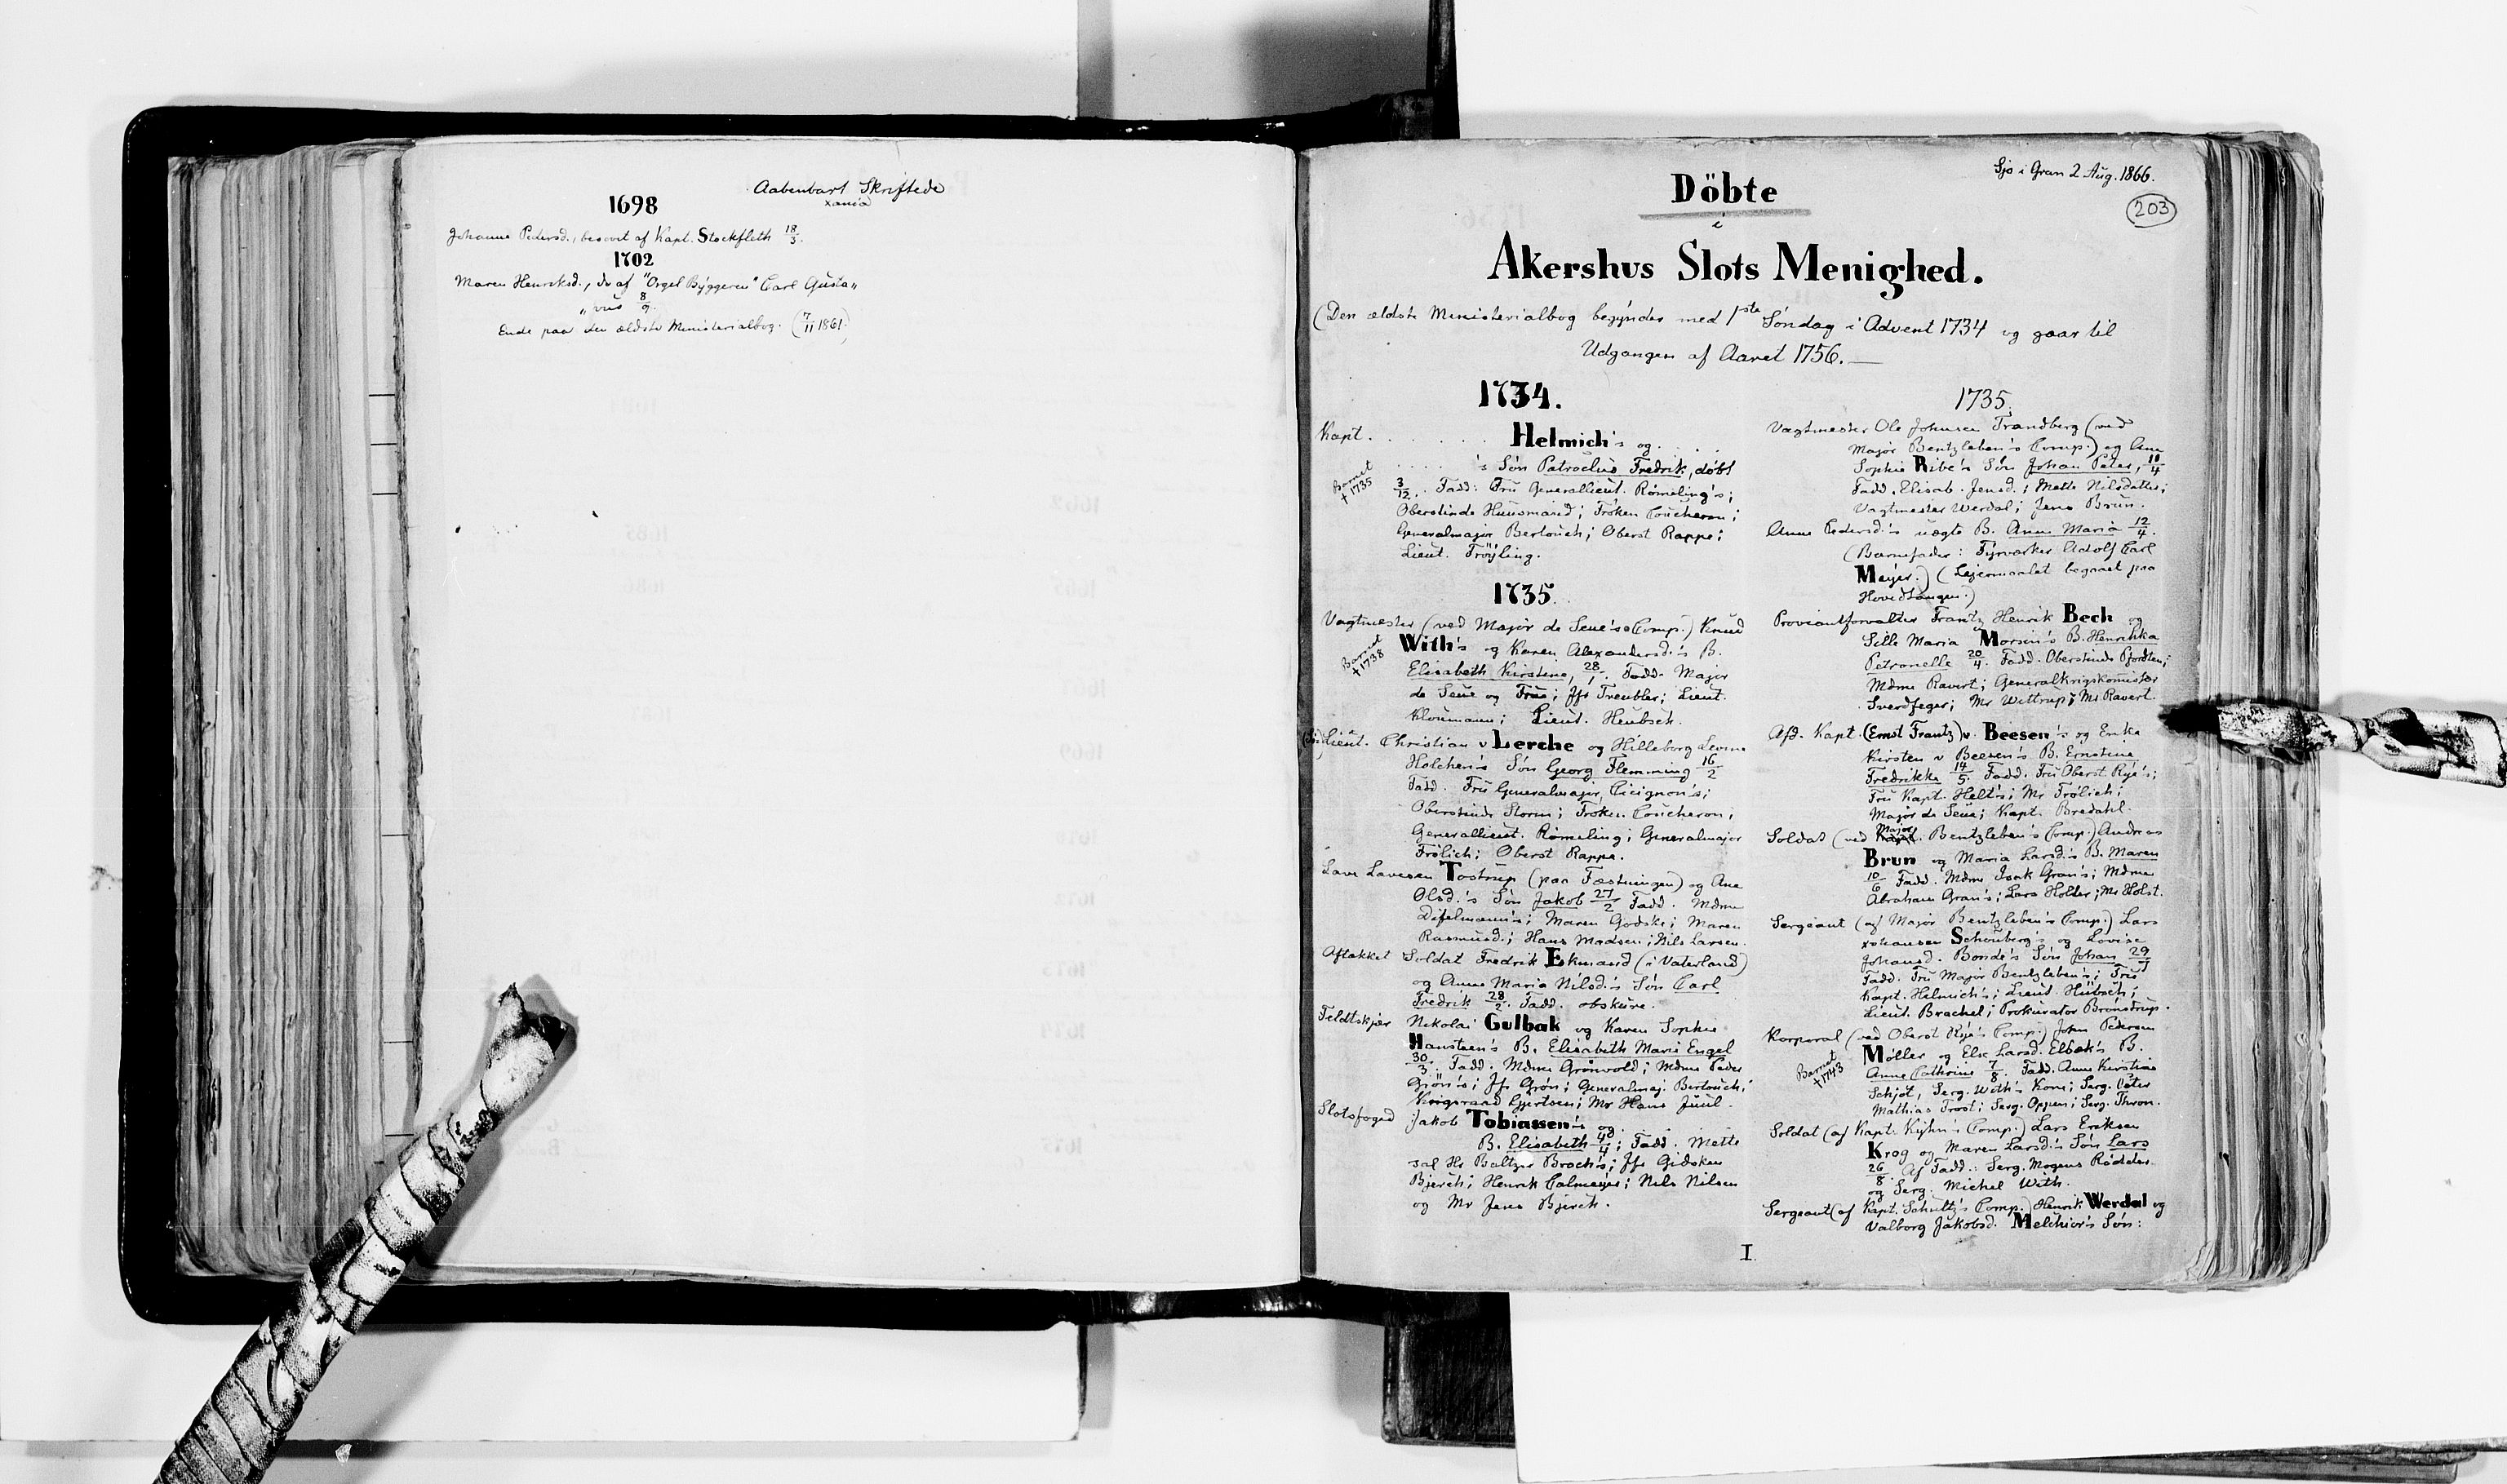 Aabenbart Skriftede
xania
1698
Johanne Pedersd., besovet af Kapt. Stockfleth 18/3.
1702
Maren Henriksd., do af "Orgel Byggeren" Carl Gusta„
„vus 8/9.
Ende paa den ældste Ministerialbog. (7/11 1861)
Sjo i Gran 2 Aug. 1866.
203
Döbte
i
Akershus Slots Menighed.
(Den ældste Ministerialbog begynder med 1ste Söndag i Advent 1734 og gaar til
Udgangen af Aaret 1756.—
1734.
Kapt. . . . . . . . Helmich's og . . .
. . . . . 's Søn Patroclus Fredrik, døbt
Barnet
† 1735
3/12. Fadd: Fru Generallieut. Römeling's;
Oberstinde Huusmand; Frøken Coucheron;
Generalmajor Bertouch; Oberst Rappe;
Lieut. Fröyling.
1735.
Vagtmester (ved Major de Seue's Comp.) Knud
With's og Karen Alexandersd.'s B.
Barnet
† 1738
Elisabeth Kirstine, 28/1. Fadd. Major
de Seue og Frue; Jfr Treubler; Lieut.
Kloumann; Lieut. Heubsch.
Lieut. Christian v Lerche og Hilleborg Levina
Holchen's Søn Georg Flemming 16/2
Fadd. Fru Generalmajor Cicignon's;
Oberstinde Storm; Frøken Coucheron;
Generallieut. Römeling; Generalmajor
Frölich; Oberst Rappe.
Lave Lavesen Tostrup (paa Fæstningen) og Ane
Olsd.'s Søn Jakob 27/2 Fadd. Mdme
Difelmann's; Maren Godske; Maren
Rasmusd.; Hans Madsen; Nils Larsen.
Aftakket Soldat Fredrik Ekmand (i Vaterland)
og Anne Maria Nilsd.'s Søn Carl
Fredrik 28/2. Fadd. obskure.
Feldtskjær Nikolai Gulbak og Karen Sophie
Hansteen's B. Elisabeth Marie Engel
30/3. Fadd. Mdme Grönvold; Mdme Peder
Grön's; Jfr Grøn; Generalmaj. Bertouch;
Krigsraad Gjertsen; Mr Hans Juul.
Slotsfoged Jakob Tobiassen's og . .
B. Elisabeth 4/4; Fadd. Mette
sal Hr Baltzer Broch's; Jfr Gidsken
Bjerch; Henrik Calmeyer; Nils Nilsen
og Mr Jens Bjerch.
1735.
Vagtmester Ole Johnsen Trandberg (ved
Major Bentzleben's Comp.) og Ane
Sophie Ribe's Søn Johan Peter, 10/4
Fadd. Elisab. Jensd.; Mette Nilsdatter;
Vagtmester Werdal; Jens Brun.
Anne Pedersd.'s uægte B. Anne Maria 12/4.
(Barnefader: Fyrværker Adolf Carl
Meyer.) (Lejermaalet begaaet paa
Hovedtangen.)
Proviantforvalter Frantz Henrik Bech og
Sille Maria Morsin's B. Henrikka
Petronelle 20/4. Fadd. Oberstinde Pfordten;
Mdme Ravert; Generalkrigskomissær
Sverdfeger; Mr Wittrup; Mr Ravert.
Afd. Kapt. (Ernst Frantz) v. Beesen's og Erika
Kirsten v Beesen's B. Ernstine
Fredrikke 14/5. Fadd. Fru Oberst Rye's;
Fru Kapt. Helt's; Mr Frölich;
Major de Seue; Kapt. Bredahl.
Soldat (ved Major Bentzleben's Comp.) Andreas
Brun og Maria Larsd.'s B. Maren
10/6 Fadd. Mdme Isak Gran's; Mdme
Abraham Gran's; Lars Holter; Mr Holst.
Sergeant (af Major Bentzleben's Comp.) Lars
Johansen Schouberg's og Lovise
Johansd. Bonde's Søn Johan 29/7
Fadd. Fru Major Bentzleben's; Fru
Kapt. Helmich's; Lieut. Hübsch;
Lieut. Brachel; Prokurator Bronstrup.
Korporal (ved Oberst Rye's Comp.) John Pedersen
Møller og Else Larsd. Elbæk's B.
Barnet
† 1743
Anne Cathrine 7/8. Fadd. Anne Kirstine
Schjöt, Serg. With's Kone; Serg. Peter
Mathias Frost; Serg. Oppen; Serg. Thron.
Soldat (af Kapt. Kyhn's Comp.) Lars Eriksen
Krog og Maren Larsd.'s Søn Lars
26/8. Af Fadd.: Serg. Mogens Rödder
og Serg. Michel With.
Sergeant (af Kapt. Schultz's Comp.) Henrik Werdal og
Valborg Jakobsd. Melchior's Søn:
I.